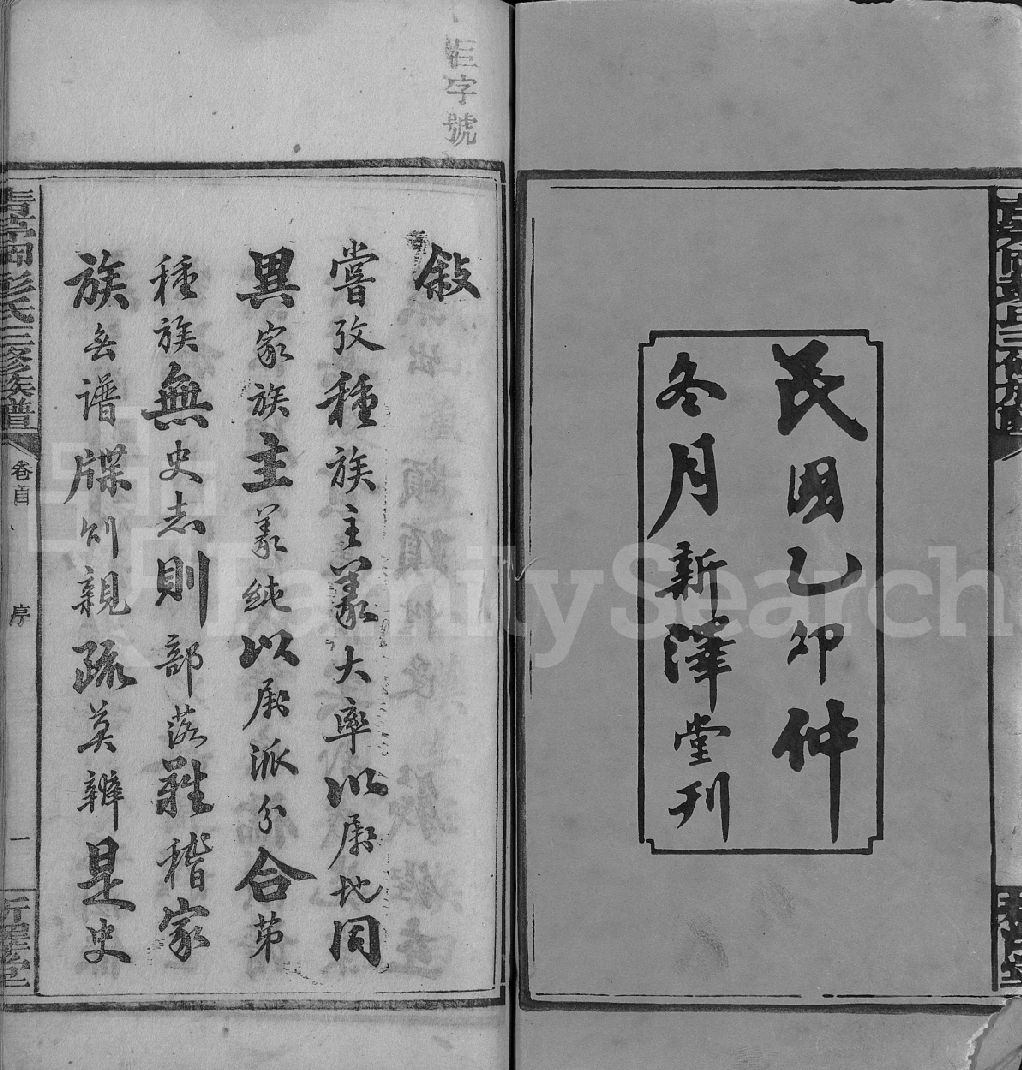 民國乙卯仲
冬月新澤堂刊
字號
敍
嘗攷種族主義大率以属地同
異家族主義純以属派分合苐
種族無史志則部落難稽家
族無譜牒則親疏莫辨是史
彭氏三修族譜
卷首
序
一
新澤堂